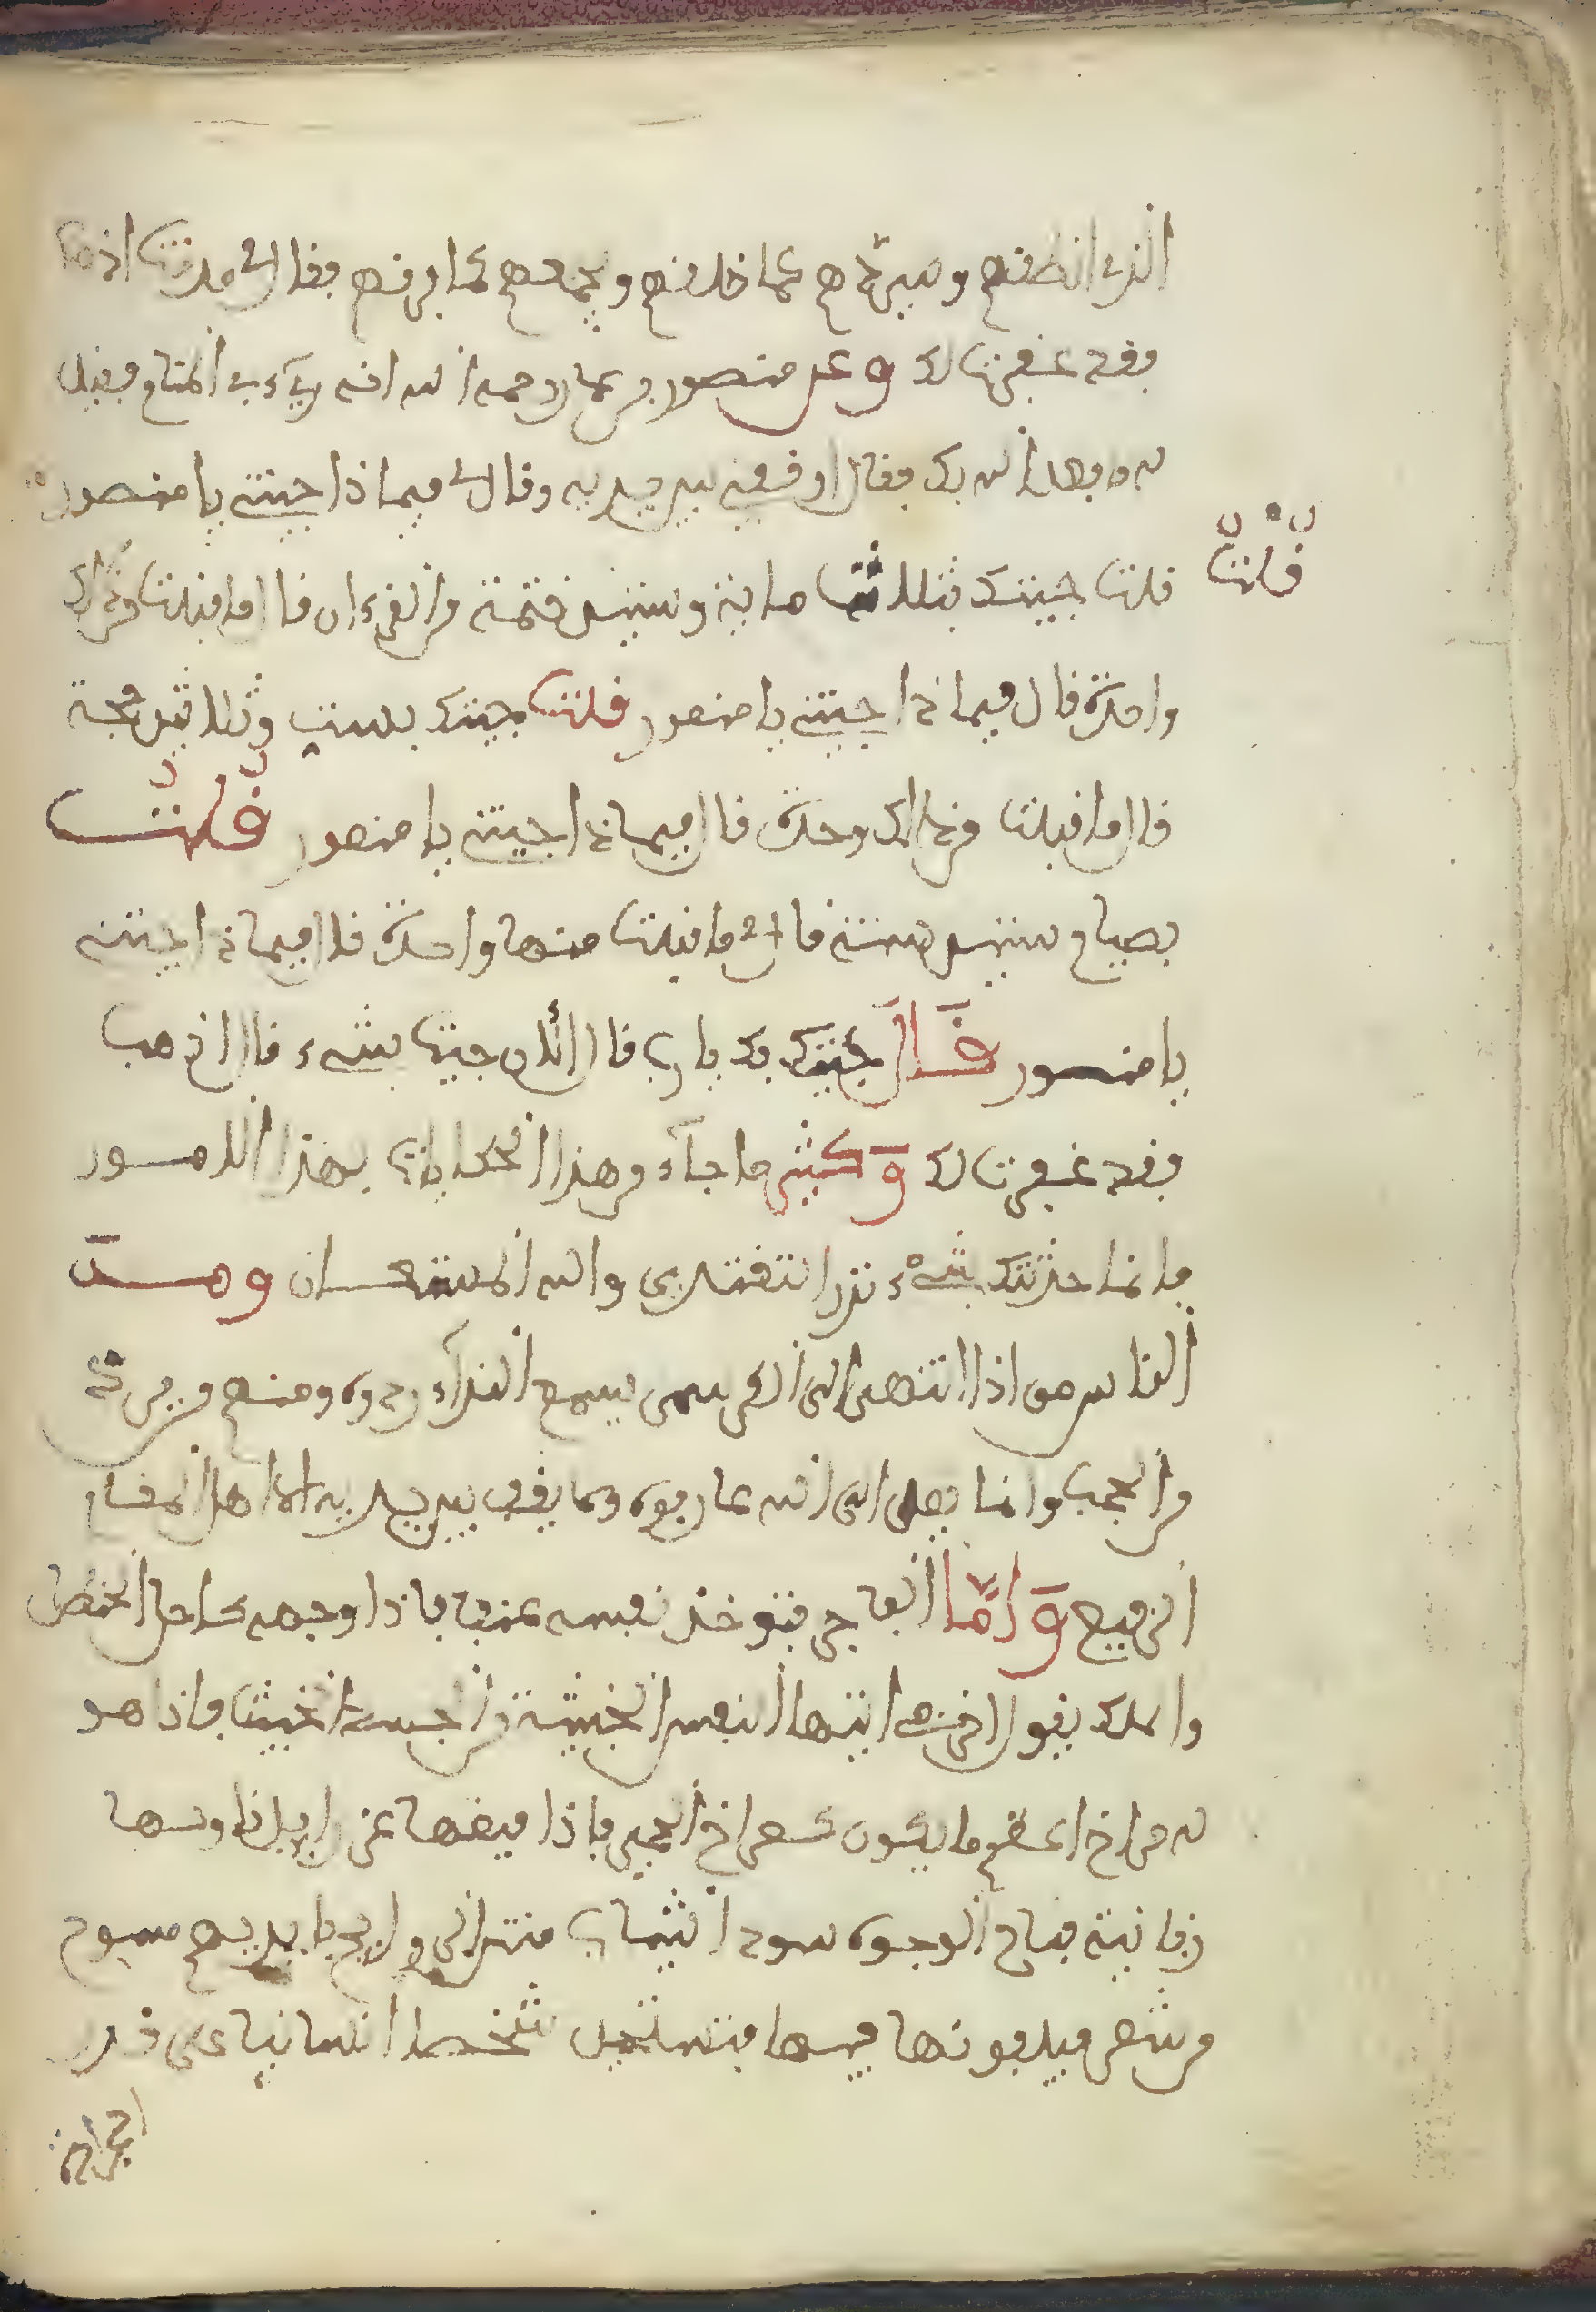 الذي انطقهم وسيرتهم عما خلفهم ويجمعهم كما فرقهم فقال لي صدقت اذهب
فقد غفرت لك وعن منصور بن عمار رحمه الله انه ريء في المنام فقيل
له ما فعل الله بك فقال اوقفني بين يديه وقال لي فيماذا جيتني يا منصور
قلت
قلت جيتك بثلاث ماية وستين ختمة من القرءان قال ما قبلت من ذالك
واحدة قال فيماذا جيتني يا منصور قلت جيتك بست وثلاثين حجة
قال ما قبلت من ذالك وحدة قال فيماذا جيتني يا منصور قلت
بصيام ستين سنة قال لي ما قبلت منها واحدة قال فيماذا جيتني
يا منصور قال جيتك بك يا رب قال الئان جيت بشيء قال اذهب
فقد غفرت لك وكثير ما جاء من هذا الحكايات بهذا الامور
وانما حدثتك بشيء نزر لتقتدي والله المستعان ومن
الناس من اذا انتهى الى الكرسي يسمع النداء ردوه ومنهم من يرد
من الحجب وانما يصل الى الله عارفوه وما يقف بين يديه الا اهل المقام
الرفيع وأما الفاجر فتوخذ نفسه عنفا فاذا وجهه كاكل الحنظل
والملك يقول اخرجي ايتها النفس الخبيثة من الجسد الخبيث فاذا هو
له صراخ اعظم ما يكون كصراخ الحمير فاذا قبضها عزرايل ناولها
زبانية قباح الوجوه سود الثياب منتن الريح بايديهم مسوح
من شعر فيلفونها فيها فتستحيل شخصا انسانيا على قدر
الجرادة